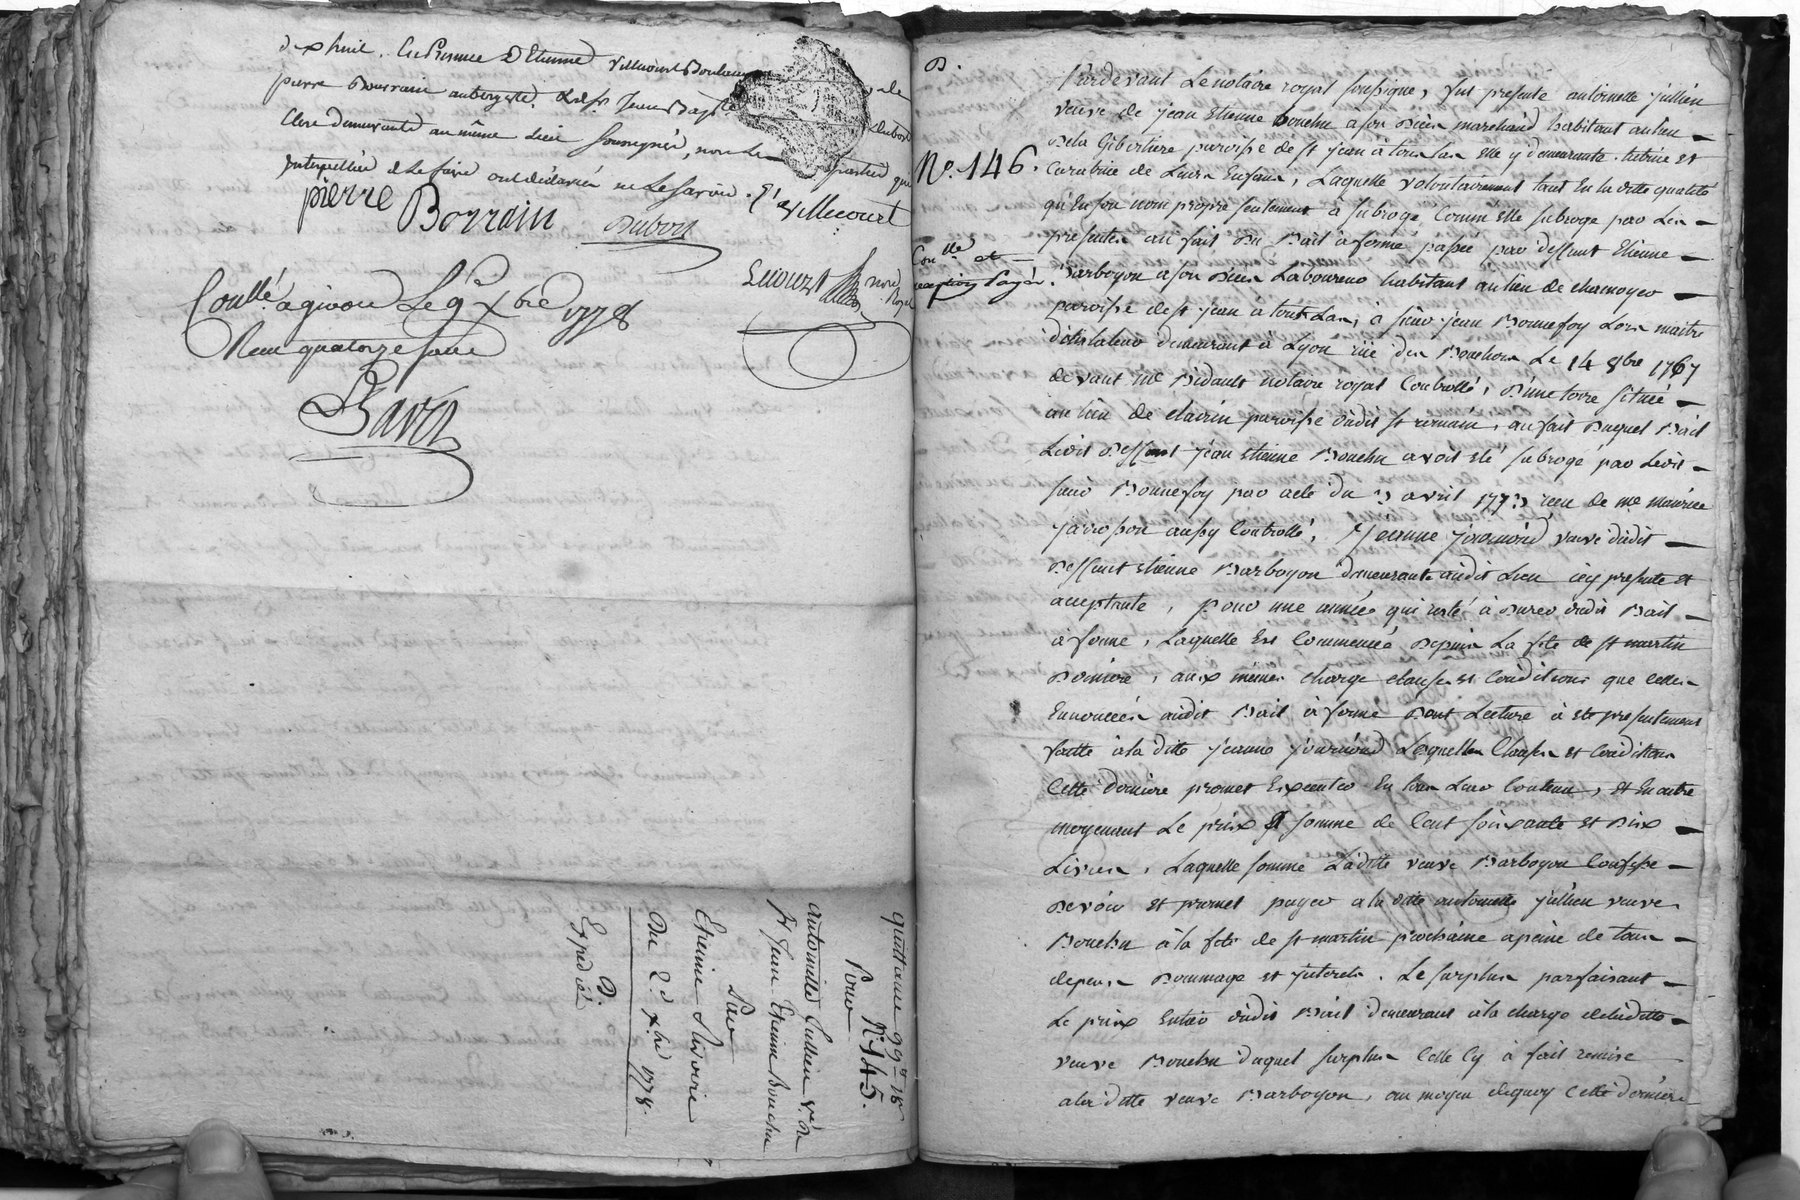 dixhuit. En Presence D'Etienne Villecourt Boulanger
pierre Borrain aubergiste. & de Sr Jean Bapte Dubost
Clerc demeurants au même Lieu soussignés, non les parties que
interpellées de le faire ont déclarées ne le savoir. E. Villecourt
pierre Borrain
Dubost
Lecourt nore Royal
Conllé a givors Le 9e Xbre 1778
Reçu quatorze sous
Bavoz
quittance 99# 18s
N° 145.
Pour
antoinette Jullien Ve de
Sr Jean Etienne Bouchu
Par
Etienne
Du 2d Xbre 1778
B.
Expédié
B.
N° 146.
Conlle et
Pardevant Le notaire royal soussigné, fut presente antoinette jullien
veuve de jean Etienne Bouchu a son deces marchand habitant au lieu
de la Gibertiere paroisse de st jean à toulas elle y demeurante. tutrice et
Curatrice de Leurs Enfans, Laquelle volontairement tant En la ditte qualité
qu'En son nom propre seulement à subrogé Comme Elle subroge par Les
presentes au fait du Bail à ferme passé par deffunt Etienne
Barboyon a son deces Laboureur habitant au lieu de charnoyer
paroisse de st jean à toulas, à sieur jean Bonnefoy Lors maitre
demeurant à Lyon rüe des Bouchers Le 14 8bre 1767
devant me Bidault notaire royal Controllé, D'une terre située
au lieu de clairin paroisse dudit st romain, au fait Duquel Bail
Ledit Deffunt jean Etienne Bouchu avoit eté subrogé par Ledit
sieur Bonnefoy par acte du 3 avril 1773 reçu de me maurice
jarosson aussy Controllé, à jeanne journoud veuve dudit
Deffunt Etienne Barboyon demeurante audit Lieu icy presente et
acceptante, pour une année qui reste à Durer dudit Bail
à ferme, Laquelle Est Commencée Depuis La fete de st martin
Derniere, aux mêmes charge clauses et Conditions que celles
Ennoncées audit Bail à ferme Dont Lecture à eté presentement
faitte à la ditte jeanne journoud Lesquelles Clauses et Conditions
Cette derniere promet Executer En tous Leur Contenu, et En outre
moyenant Le prix & somme de Cent soixante et Dix
Livres, Laquelle somme Laditte veuve Barboyon Confesse
Devoir et promet payer a la ditte antoinette jullien veuve
Bouchu à la fete de st martin prochaine a peine de tous
depens Dommage et jnterets. Le surplus parfaisant
Le prix Entier dudit Bail demeurant à la charge de laditte
veuve Bouchu duquel surplus Celle Cy à fait remise
a la ditte veuve Barboyon, au moyen de quoy Cette derniere